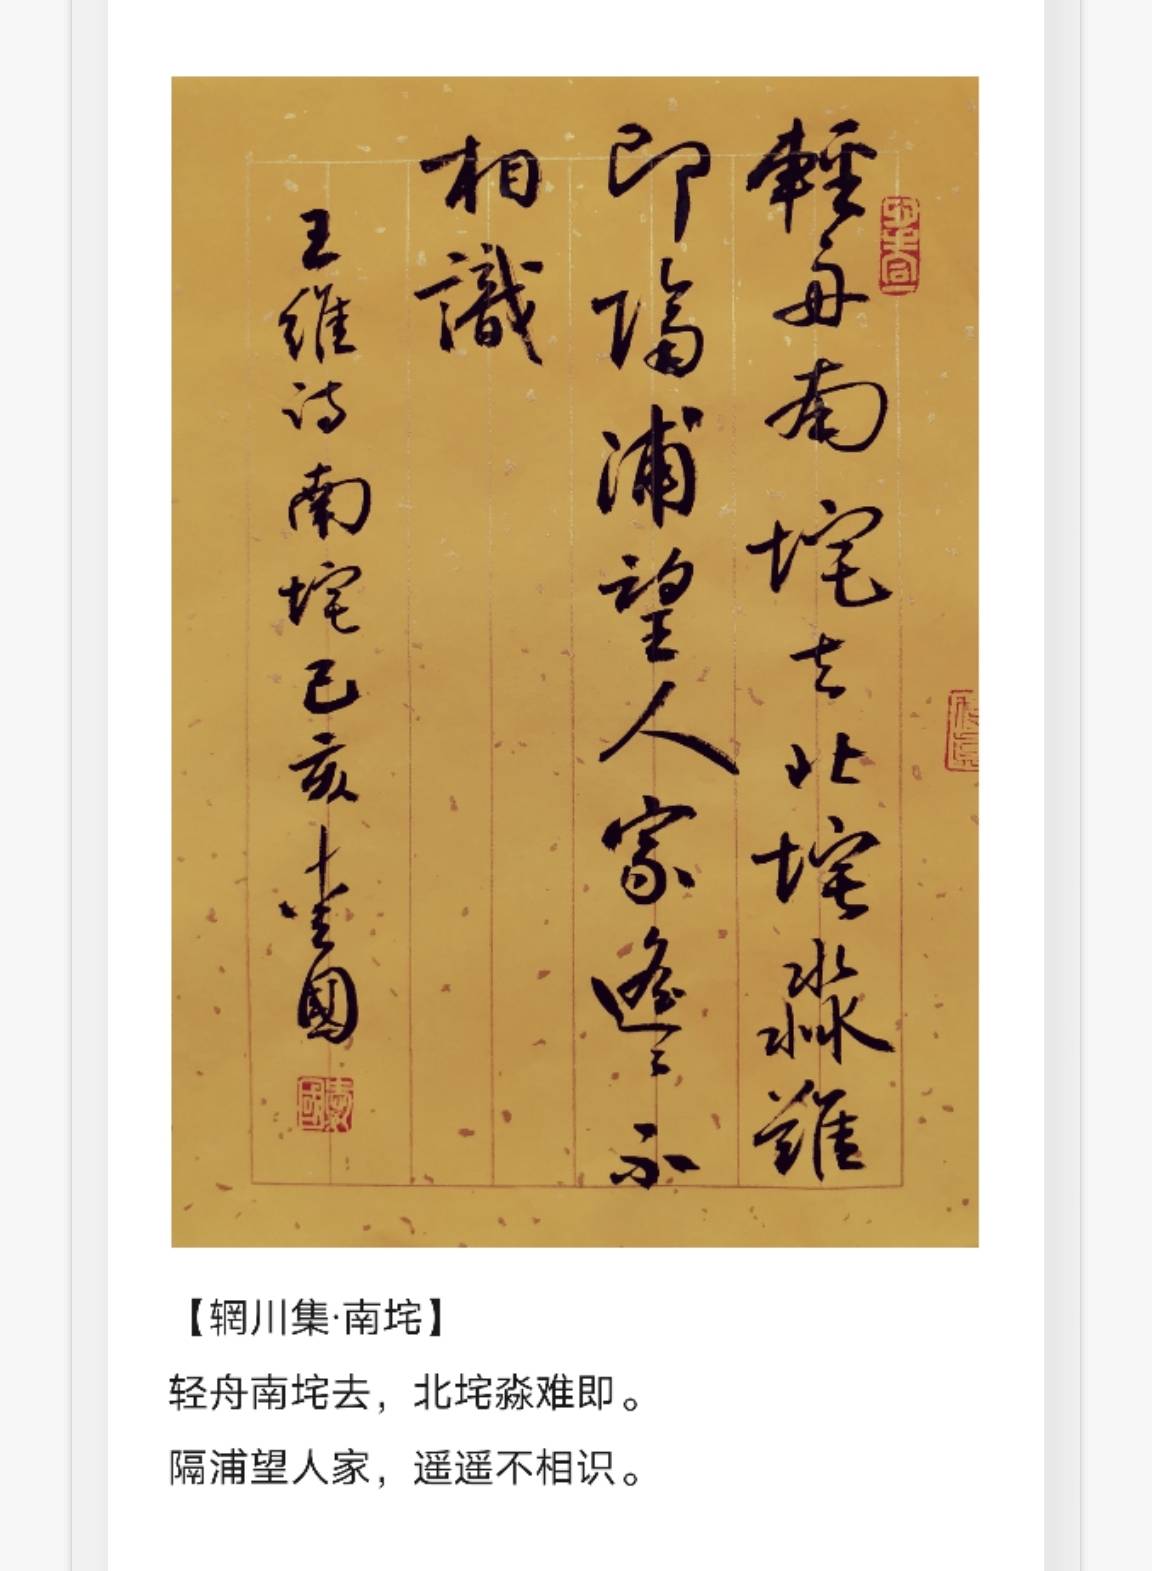 輕舟南垞去北垞淼難
即隔浦望人家遙〻不
相識
王維詩南垞己亥十堂國
【辋川集·南垞】
轻舟南垞去，北垞淼难即。
隔浦望人家，遥遥不相识。